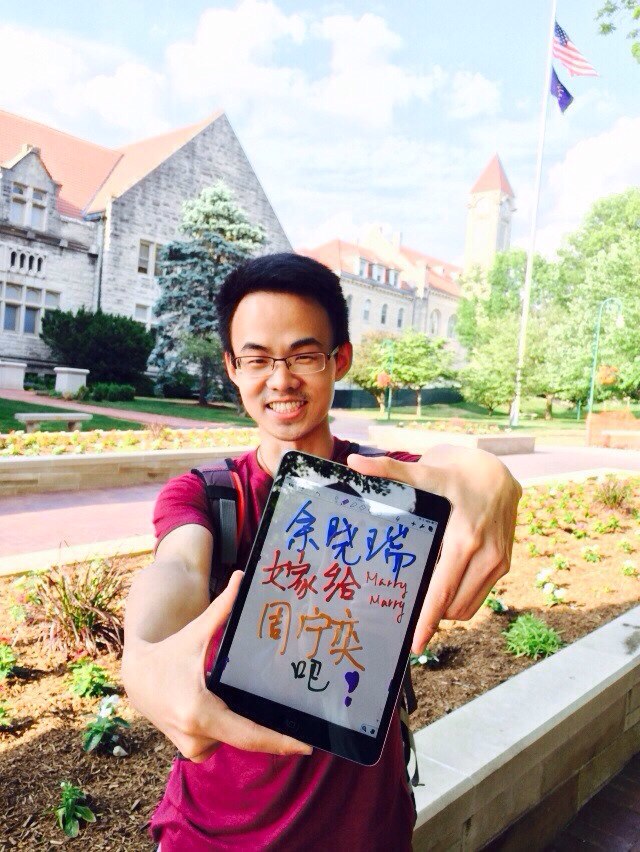 余晓瑞
嫁给 Marry
Marry
周宁奕
吧!